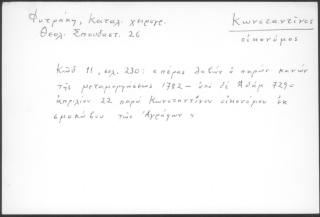 Φυτράκη, Καταλ. χειρογρ.
Θεολ. Σπουδαστ. 26
Κωνσταντῖνος
οἰκονόμος
Κῶδ. 11, σελ. 230: επέρας λαβὼν ὁ παρὼν κανών
τῆς μεταμορφώσεως 1782 – ἀπὸ δὲ Ἀδὰμ 7290
ἀπριλίου 22 παρὰ Κωνσταντίνου οἰκονόμου ἐκ
τῶν Ἀγράφων »